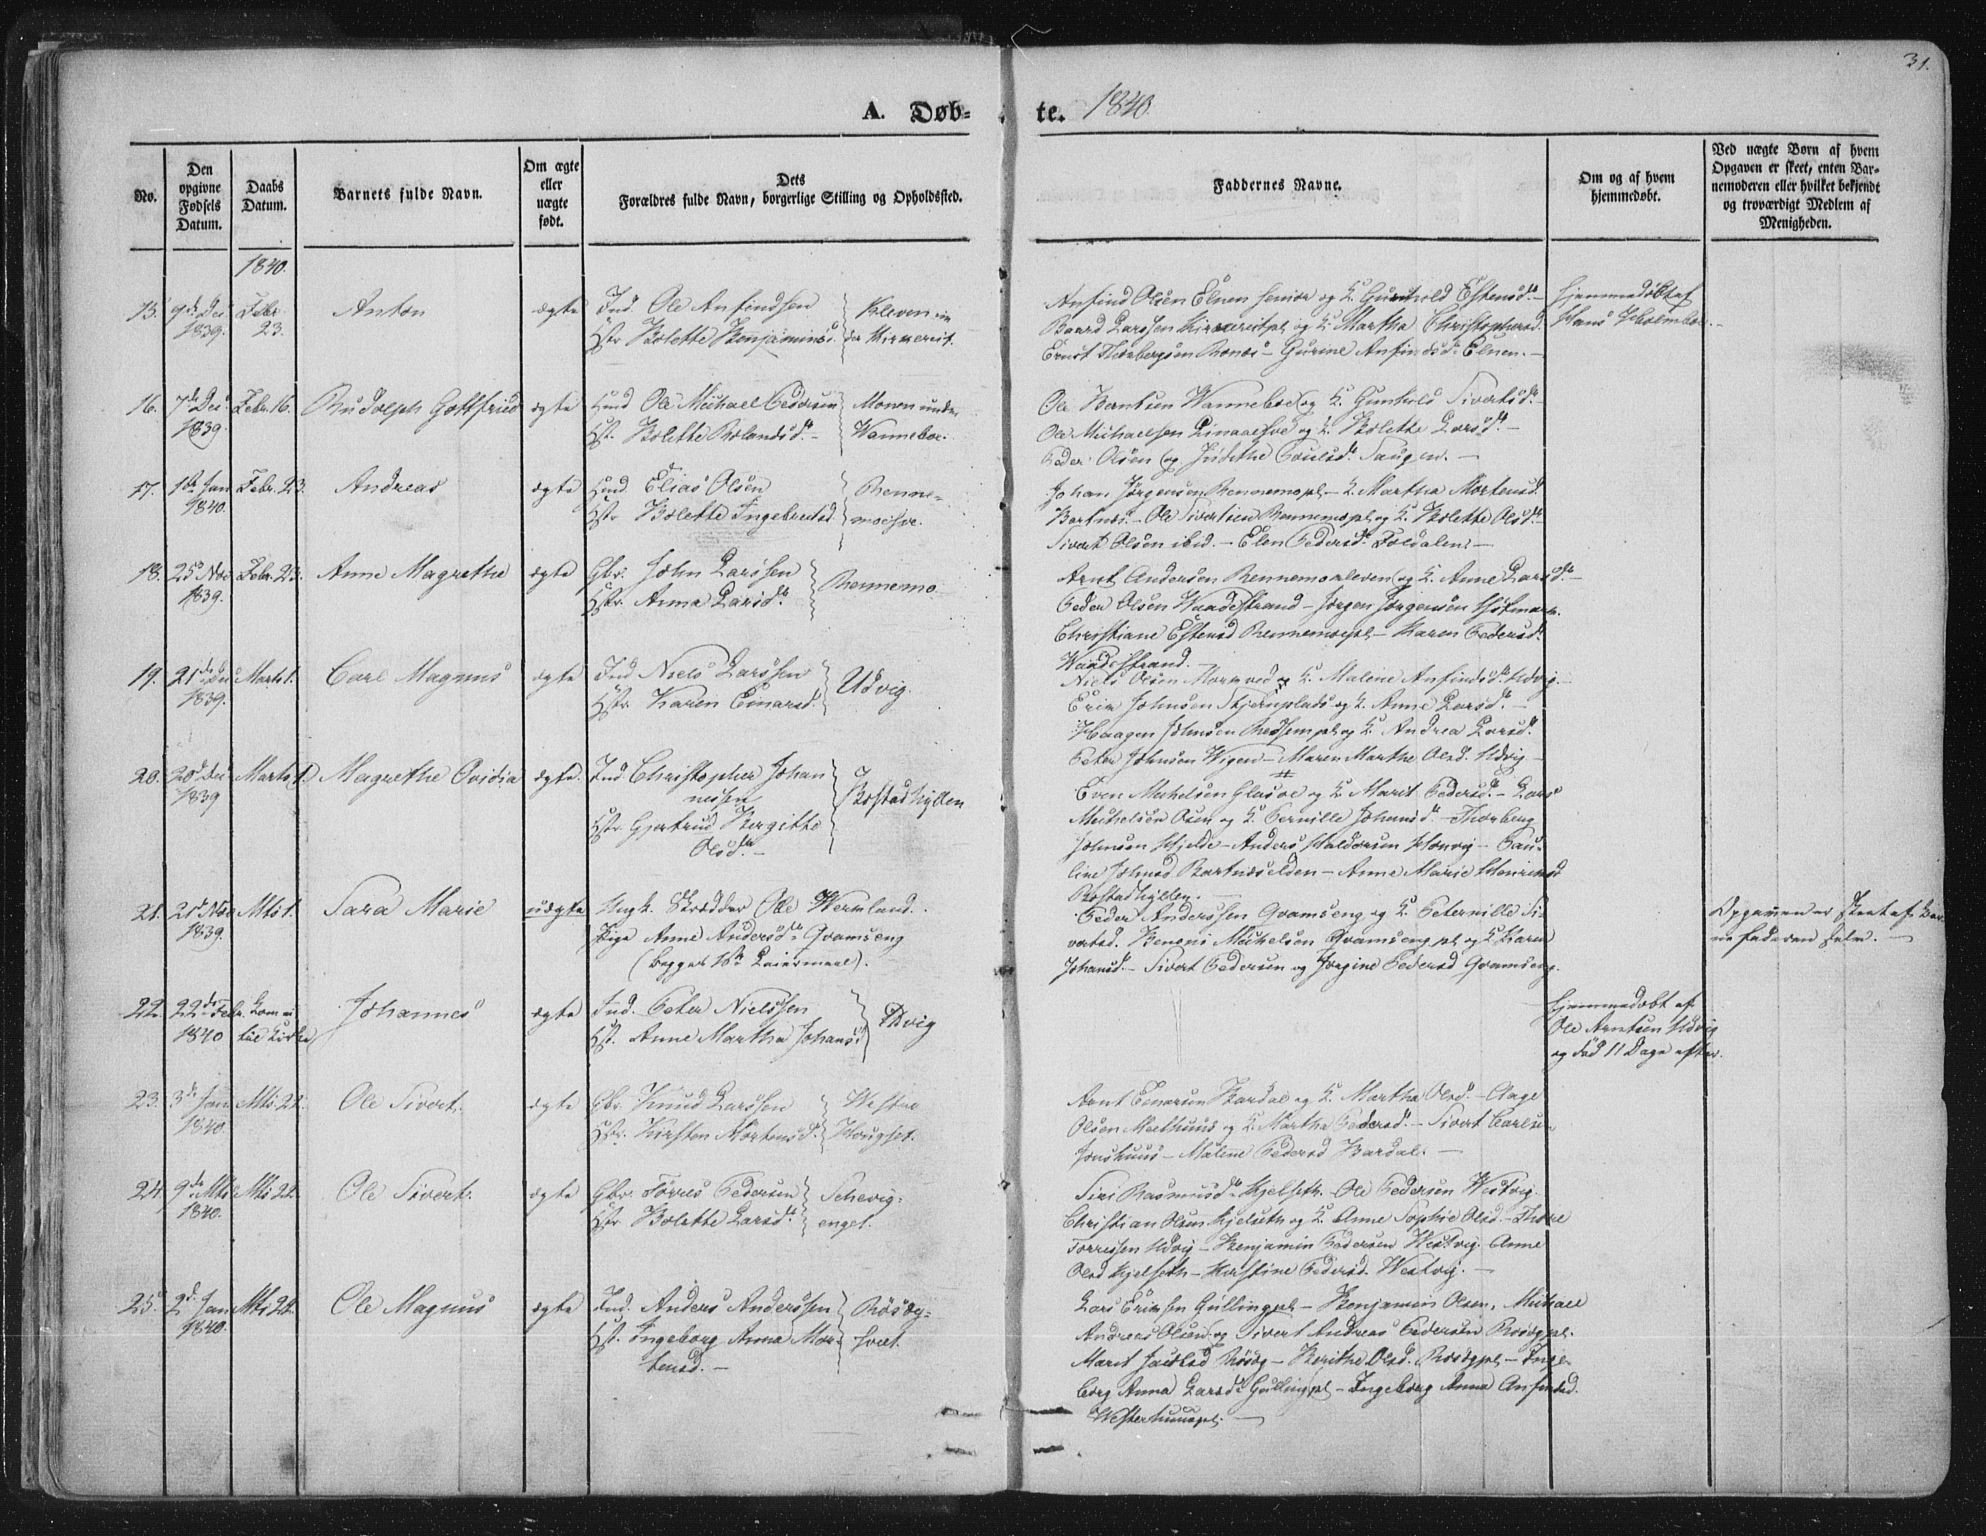 31.
A. Døb-
te. 1840.
No.
Den opgivne Fødsels Datum.
Daabs Datum.
Barnets fulde Navn.
Om ægte eller uægte født.
Dets Forældres fulde Navn, borgerlige Stilling og Opholdssted.
Faddernes Navne.
Om og af hvem hjemmedøbt.
Ved uægte Born af hvem Opgaven er skeet, enten Barnemoderen eller hvilket bekjendt og troværdigt Medlem af Menigheden.
1840.
15. 9de Dec 1839. Febr. 23. Anton ægte Ind. Ole Anfindsen
Hstr Bolette Benjamins. Kleven un
der Kirkereit.
Anfind Olsen Elnen senior og K. Gunhold Estensd.
Baard Larssen Kirkereitpl og K. Martha Christophersd.
Ernst Thorbergsen Rones – Gurine Anfindsd. Elnen. –
Hjemmedøbt af
Hans Holmboe.
16. 7de Dec 1839. Febr. 16. Rudolph Gottfried ægte Hmd Ole Michael Pedersen
Hst. Bolette Rolandsd. – Monen under
Wanneboe.
Ole Berntsen Wanneboe og K. Gunhold Sivertsd. –
Ole Michaelsen og K. Bolette Larsd. –
Peder Olsen og Judithe Paulsd. Saugen. –
17. 1ste Jan 1840. Febr. 23. Andreas ægte Hmd Elias Olsen
Hstr Bolette Ingebretsd. Renne-
moehoe.
Johan Jørgensen Rennemopl – K. Martha Mortensd.
Bartnes. – Ole Sivertsen Rennemopl og K. Bolette Olsd. –
Sivert Olsen ibid. – Elen Pedersd. Foldalen. –
18. 25de Nov 1839. Febr. 23. Anne Magrethe ægte Gbr. John Larssen
Hstr. Anna Larsd. Rennemo
Arnt Andersen Rennemokleven og K. Anne Larsd. –
Peder Olsen Waadestrand – Jørgen Jørgensen Hofmark.
Christiane Estensd Rennemopl – Karen Pedersd.
Waadestrand. –
19. 21de Dec 1839. Marts 1. Carl Magnus ægte Ind Niels Larssen
Hstr. Karen Einarsd. Udvig.
Niels Olsen Morkved og K. Malene Anfindsd. Udvig.
Erik Johnsen Stjernplads og K. Anne Larsd. –
Haagen Johnsen Ressempl og K. Andrea Larsd.
Peter Johnsen Wigen – Maren Marthe Olsd. Udvig –
20. 20de Dec 1839 Marts 1. Magrethe Ovidia ægte. Ind. Christopher Johan
nessen
Hstr. Gjertrud Bergitte
Olsd. – Bostadhyllen
Even Michelsen Glasoe og K. Marit Pedersd. – Lars
Michelsen Oxen og K. Pernille Johansd. – Thorberg
Johnsen Hjelde – Anders Haldorsen Hønvig – Pau-
line Johnsd Bartnæselden – Anne Marie Henriksd
Bostadhyllen. –
21. 21de Nov 1839. Mts 1. Sara Marie uægte Ungk. Skrædder Ole Wermland.
Pige Anne Andersd. Qvamseng
(begges 1ste Leiermaal).
Peder Anderssen Qvamseng og K. Peternille Si-
vertsd. Benoni Michelsen Qvamseng pl og K Karen
Johansd. – Sivert Pedersen og Jørgine Pedersd Qvamseng.
Opgaven er skeet af Bar-
nefaderen selv. –
22. 22de Febr. 1840 Kom ei til Kirke Johannes ægte Ind. Peter Nielssen
Hst. Anne Martha Johansd Udvig
Hjemmedøbt af
Ole Arntsen Udvig
og død 11 Dage efter.
23. 3de Jan 1840. Mts. 22. Ole Sivert. ægte Gbr. Knud Larssen
Hstr. Kirsten Mortensd. Wester
Hougset.
Arnt Einersen Bardal og K. Martha Olsd. – Aage
Olsen Melhuus og K. Martha Pedersd. – Sivert Carlsen
Jonshuus – Malene Pedersd Bardal. –
24. 9de Mts 1840. Mts 22. Ole Sivert. ægte Gbr. Torres Pedersen
Hstr Bolette Larsd. Schevig-
enget.
Siri Rasmusd. Kjelseth. – Ole Pedersen Westvig
Christian Olsen Kjelseth og K. Anne Sophie Olsd. – Thore
Torressen Udvig – Benjamin Pedersen Westvig. Anne
Olsd Kjelseth – Kirstine Pedersd. Westvig. –
25. 2de Jan 1840. Mts 22. Ole Magnus ægte Ind. Anders Anderssen
Hst. Ingeborg Anna Mor-
tensd. – Røsæg-
hvet.
Lars Eriksen Gullingpl – Benjamin Olsen, Michael
Andreas Olsen og Sivert Andreas Pedersen Røsægpl.
Marit Jacobsd Røsæg – Berithe Olsd. Røsægpl – Inge-
borg Anna Larsd. Gullingpl – Ingeborg Anna Anfindsd.
Westerhuuspl. –